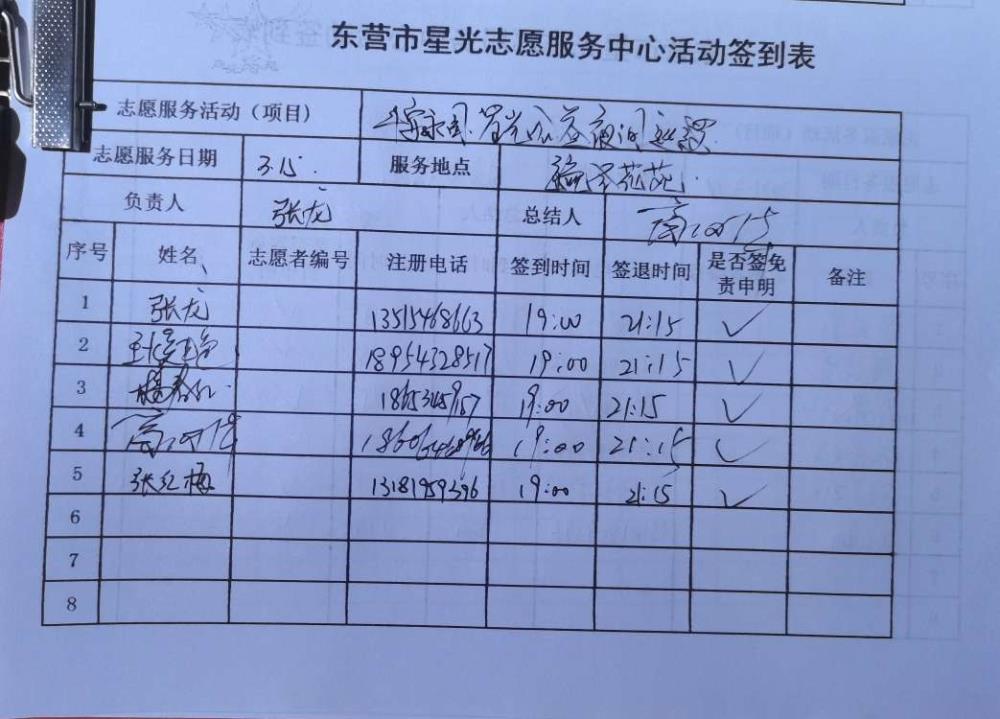 东营市星光志愿服务中心活动签到表
志愿服务活动（项目） 星光公益夜间巡逻
志愿服务日期 3.15. 服务地点
负责人 张龙 总结人
序号 姓名 志愿者编号 注册电话 签到时间 签退时间 是否签免责申明 备注
1 张龙 13515468663 19:00 21:15 ✓
2 18954328517 19:00 21:15 ✓
3 19:00 21:15 ✓
4 19:00 21:15 ✓
5 张红梅 13181959396 19:00 21:15 ✓
6
7
8